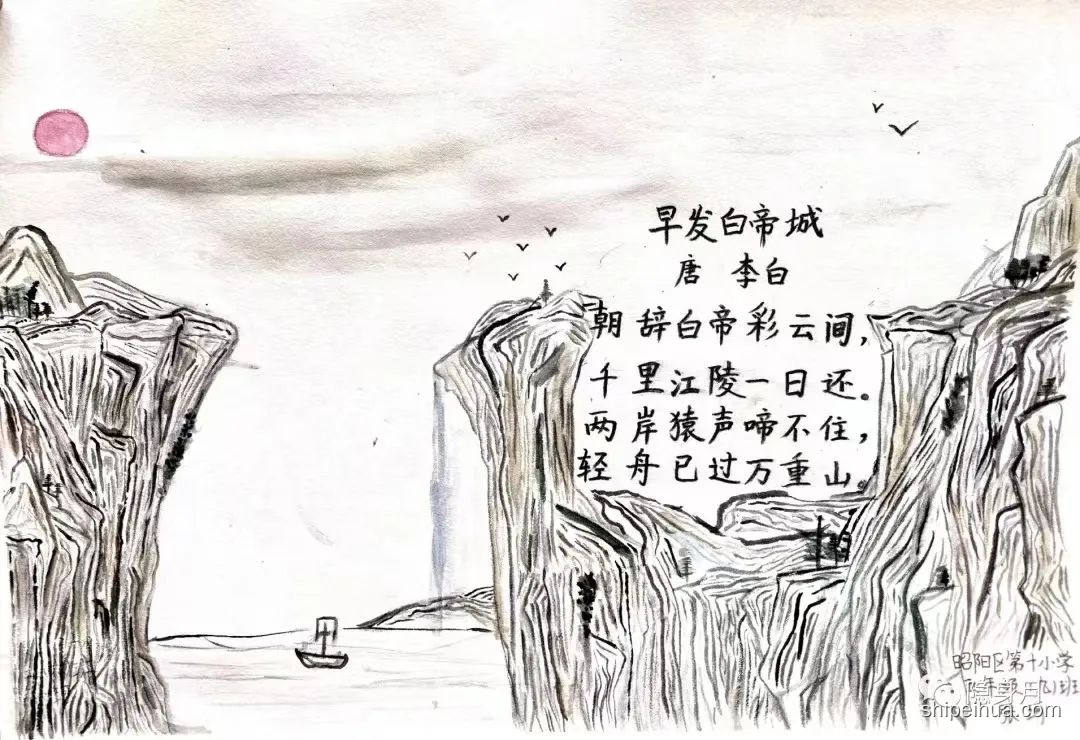 早发白帝城
唐 李白
朝辞白帝彩云间，
千里江陵一日还。
两岸猿声啼不住，
轻舟已过万重山。
昭阳区第十小学
年级 九1班
shipeihua.com